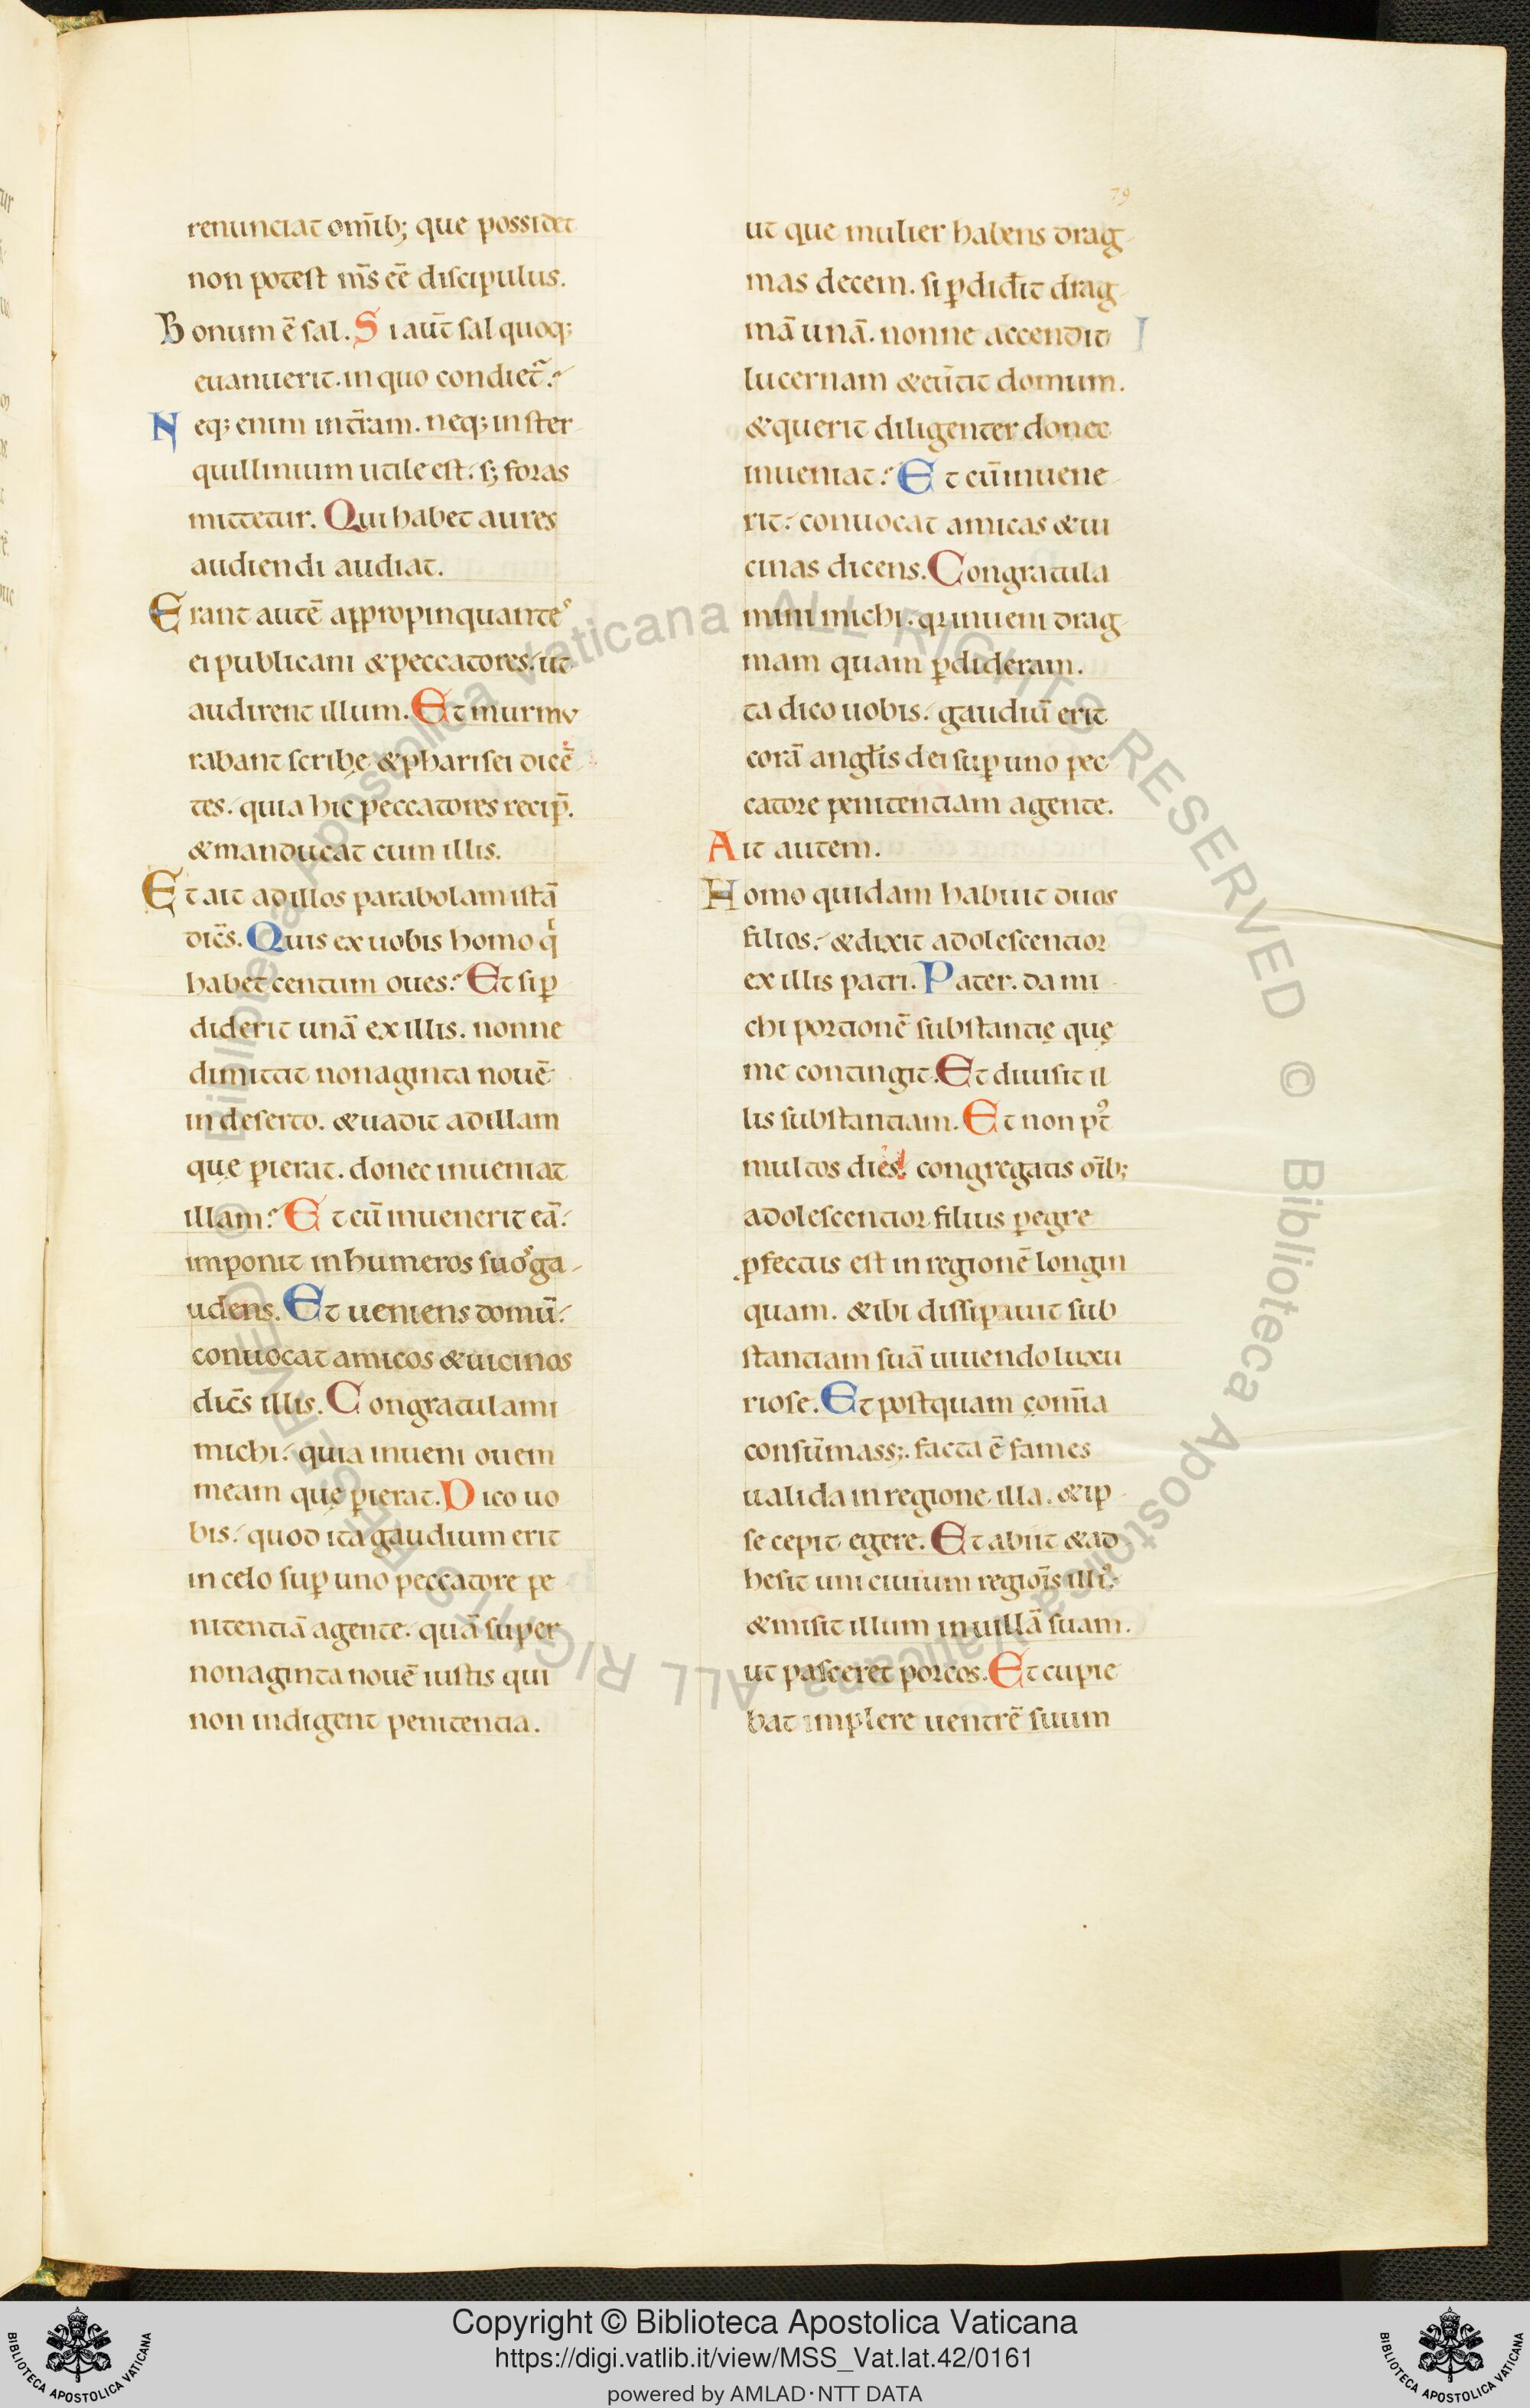 79
renunciat om̄ib; que possidet
non potest m̄s eē discipulus.
Bonum ē sal. Si aūt sal quoq;
euanuerit. in quo condiet᷑.
Neq; enim in t̄ram. neq; in ster
quillinium utile est. s; foras
mittetur. Qui habet aures
audiendi audiat.
Erant autē appropinquantes
ei publicani & peccatores. ut
audirent illum. Et murmu
rabant scribę & pharisei dicē
tes. quia hic peccatores recip̄.
& manducat cum illis.
Et ait ad illos parabolam istā
dic̄s. Quis ex uobis homo qͥ
habet centum oues. Et si ꝑ
diderit unā ex illis. nonne
dimittit nonaginta nouē
in deserto. & uadit ad illam
quę ꝑierat. donec inueniat
illam. Et cū inuenerit eā.
imponit in humeros suos ga
udens. Et ueniens domū.
conuocat amicos & uicinos
dic̄s illis. Congratulami
michi. quia inueni ouem
meam quę ꝑierat. Dico uo
bis. quod ita gaudium erit
in celo suꝑ uno peccatore pe
nitentiā agente. quā super
nonaginta nouē iustis qui
non indigent penitentia.
ut que mulier habens drag
mas decem. si ꝑdid̄it drag
mā unā. nonne accendit I
lucernam & eūtit domum.
& querit diligenter donec
inueniat. Et cū inuene
rit. conuocat amicas & ui
cinas dicens. Congratula
mini michi. qꝛ inueni drag
mam quam ꝑdideram.
ta dico uobis. gaudiū erit
corā angłis dei suꝑ uno pec
catore penitentiam agente.
Ait autem.
Homo quidam habuit duos
filios. & dixit adolescentior
ex illis patri. Pater. da mi
chi portionē substantię quę
me contingit. Et diuisit il
lis substantiam. Et non pꝰt
multos dies. congregatis oīb;
adolescentior filius ꝑegre
ꝓfectus est in regionē longin
quam. & ibi dissipauit sub
stantiam suā uiuendo luxu
riose. Et postquam om̄ia
consūmass;. facta ē fames
ualida in regione illa. & ip
se cepit egere. Et abiit & ad
hesit uni ciuium regiōis illiꝰ.
& misit illum in uillā suam.
ut pasceret porcos. Et cupie
bat implere uentrē suum
© Biblioteca Apostolica Vaticana ALL RIGHTS RESERVED © Biblioteca Apostolica Vaticana ALL RIGHTS RESERVED
Copyright © Biblioteca Apostolica Vaticana
https://digi.vatlib.it/view/MSS_Vat.lat.42/0161
powered by AMLAD·NTT DATA
BIBLIOTECA APOSTOLICA VATICANA
BIBLIOTECA APOSTOLICA VATICANA